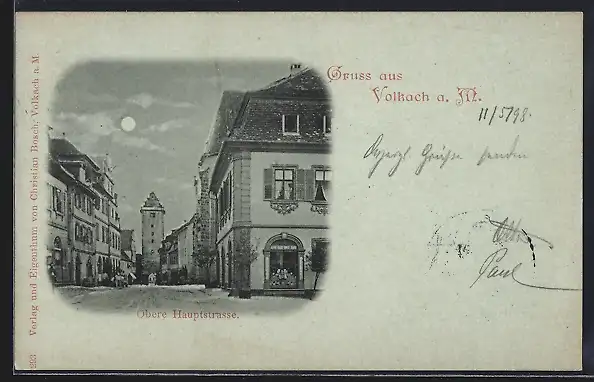 Gruss aus
Volkach a. M.
11/5/98.
Grüße senden
Otto
Paul
Obere Hauptstrasse.
Verlag und Eigenthum von Christian Bosch, Volkach a. M
293